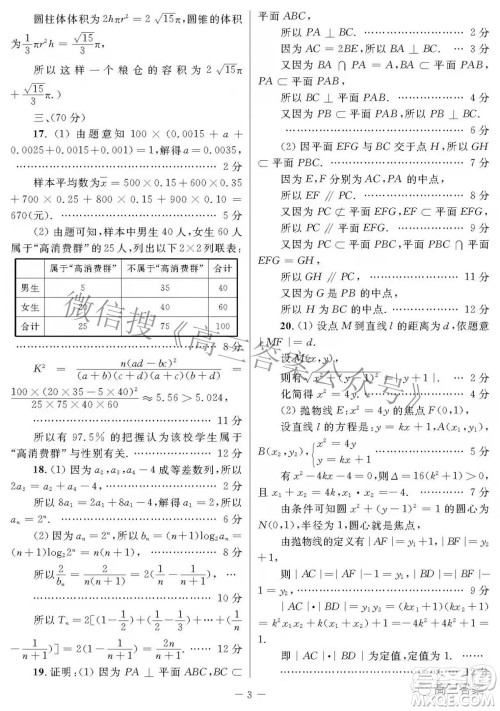 圆柱体体积为 2hπr² = 2√15π, 圆锥的体积
为 1/3 πr²h = √15/3 π,
所以这样一个粮仓的容积为 2√15π
+ √15/3 π.)
三、(70分)
17. (1) 由题意知 100×(0.0015+a+
0.0025+0.0015+0.001)=1,解得 a=0.0035,
…… 2分
样本平均数为 x̄ = 500×0.15+600×0.35
+700×0.25+800×0.15+900×0.10=
670(元). …… 5分
(2) 由题可知,样本中男生40人,女生60
人属于“高消费群”的25人,列出以下2×2列联表:
属于“高消费群” 不属于“高消费群” 合计
男生 5 35 40
女生 20 40 60
合计 25 75 100
…… 8分
K² = n(ad−bc)²/((a+b)(c+d)(a+c)(b+d)) =
100×(20×25−15)²/(25×75×40×60)
≈5.56>5.024,
…… 11分
所以有97.5%的把握认为该校学生属于
“高消费群”与性别有关. …… 12分
18. (1) 因为 a₂,a₃,a₄−4 成等差数列,所以
2a₃=a₂+a₄−4,
所以 8a₁=2a₁+8a₁−4,解得 a₁=2,
所以 aₙ=2ⁿ. …… 6分
(2) 因为 aₙ=2ⁿ,所以 bₙ=(n+1)log₂aₙ
=(n+1)log₂2ⁿ=n(n+1), …… 9分
所以 2/bₙ = 2/(n(n+1)) = 2(1/n − 1/(n+1)), ……
所以 Tₙ=2[(1−1/2)+(1/2−1/3)+…+(1/n
−1/(n+1))]=2(1−1/(n+1))=2n/(n+1). …… 12分
19. 证明:(1) 因为 PA⊥平面ABC,BC⊂
平面ABC,
所以 PA⊥BC. …… 2分
因为 AC=2BE,所以 BA⊥BC.
又因为 BA∩PA=A,BA⊂平面PAB,
PA⊂平面PAB,
所以 BC⊥平面PAB.
…… 6分
(2) 因面EFG与BC交于点H,所以GH⊂
平面PBC. …… 7分
因为 E,F 分别为AC与PA的中点,
所以 EF∥PC. …… 8分
又因为 PC⊄平面EFG,EF⊂平面EFG,
所以 PC∥平面EFG. …… 9分
又因为 PC⊂平面PBC,平面PBC∩平面
EFG=GH,
所以 GH∥PC. …… 11分
所以H是BC的中点.
…… 12分
20. (1) 设点M到直线l的距离为d,依题意
|MF|=d.
设M(x,y),
则有 √(x²+(y−1)²)=|y+1|. …… 2分
化简得 x²=4y. …… 4分
(2) 抛物线E:x²=4y的焦点F(0,1),
设直线l的方程是:y=kx+1,A(x₁,y₁),
B(x₂,y₂),{x²=4y
y=kx+1 …… 5分
有 x²−4kx−4=0,所以 Δ=16(k²+1)>0,
则 x₁+x₂=4k,x₁x₂=−4. …… 7分
由条件可知圆 x²+(y−1)²=1的圆心为
N(0,1),半径为1,圆心就是焦点,
由抛物线的定义有|AF|=y₁+1,|BF|=y₂
+1,
则|AC|=|AF|−1=y₁,|BD|=|BF|−1
=y₂, …… 9分
|AC|·|BD|=y₁y₂=(kx₁+1)(kx₂+1)
=k²x₁x₂+k(x₁+x₂)+1=−4k²+4k²+1
=1. …… 11分
即|AC|·|BD|为定值,定值为1.
— 3 —
微信搜《高三答案公众号》